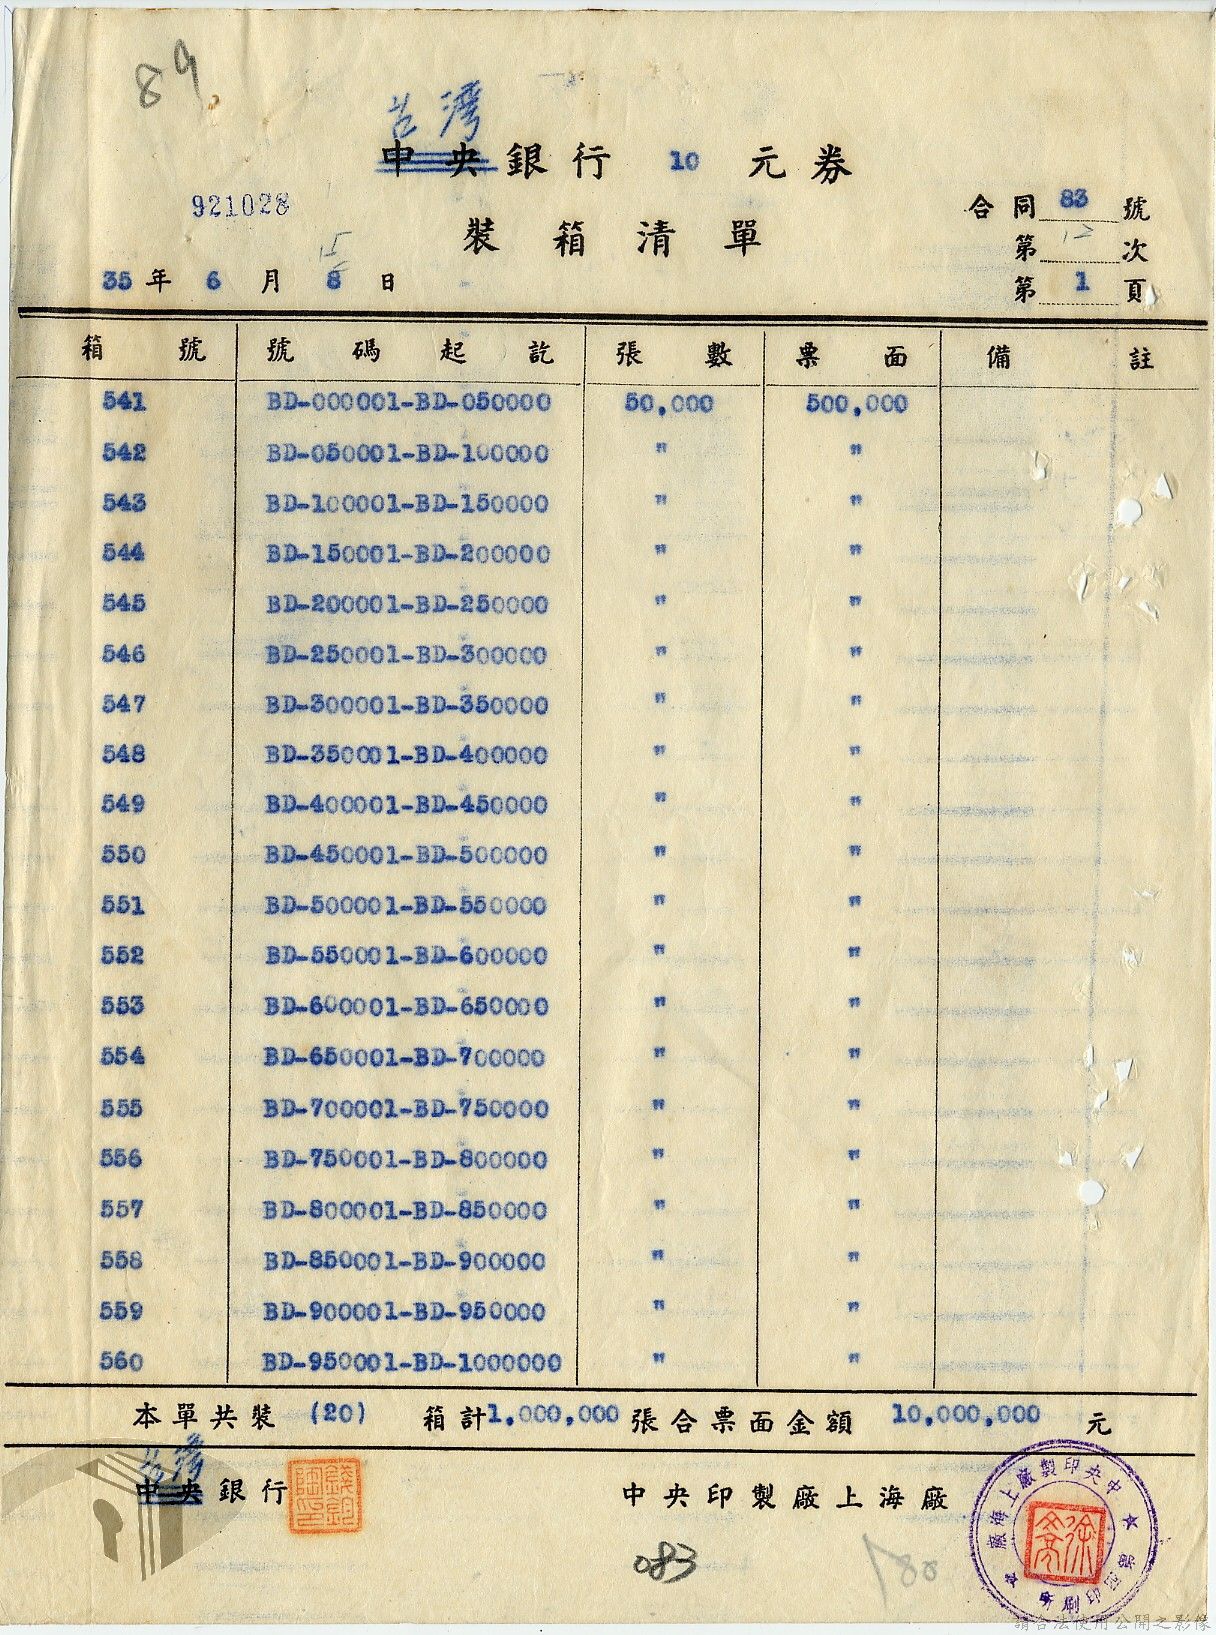 89
台灣
中央銀行 10 元券
921028
合同 83 號
裝箱清單
第 12 次
15
35 年 6 月 8 日
第 1 頁
箱號 號碼起訖 張數 票面 備註
541 BD-000001-BD-050000 50,000 500,000
542 BD-050001-BD-100000 " "
543 BD-100001-BD-150000 " "
544 BD-150001-BD-200000 " "
545 BD-200001-BD-250000 " "
546 BD-250001-BD-300000 " "
547 BD-300001-BD-350000 " "
548 BD-350001-BD-400000 " "
549 BD-400001-BD-450000 " "
550 BD-450001-BD-500000 " "
551 BD-500001-BD-550000 " "
552 BD-550001-BD-600000 " "
553 BD-600001-BD-650000 " "
554 BD-650001-BD-700000 " "
555 BD-700001-BD-750000 " "
556 BD-750001-BD-800000 " "
557 BD-800001-BD-850000 " "
558 BD-850001-BD-900000 " "
559 BD-900001-BD-950000 " "
560 BD-950001-BD-1000000 " "
本單共裝 (20) 箱計 1,000,000 張合票面金額 10,000,000 元
台灣
中央銀行
中央印製廠上海廠
中央印製廠上海廠
083
請合法使用公開之影像